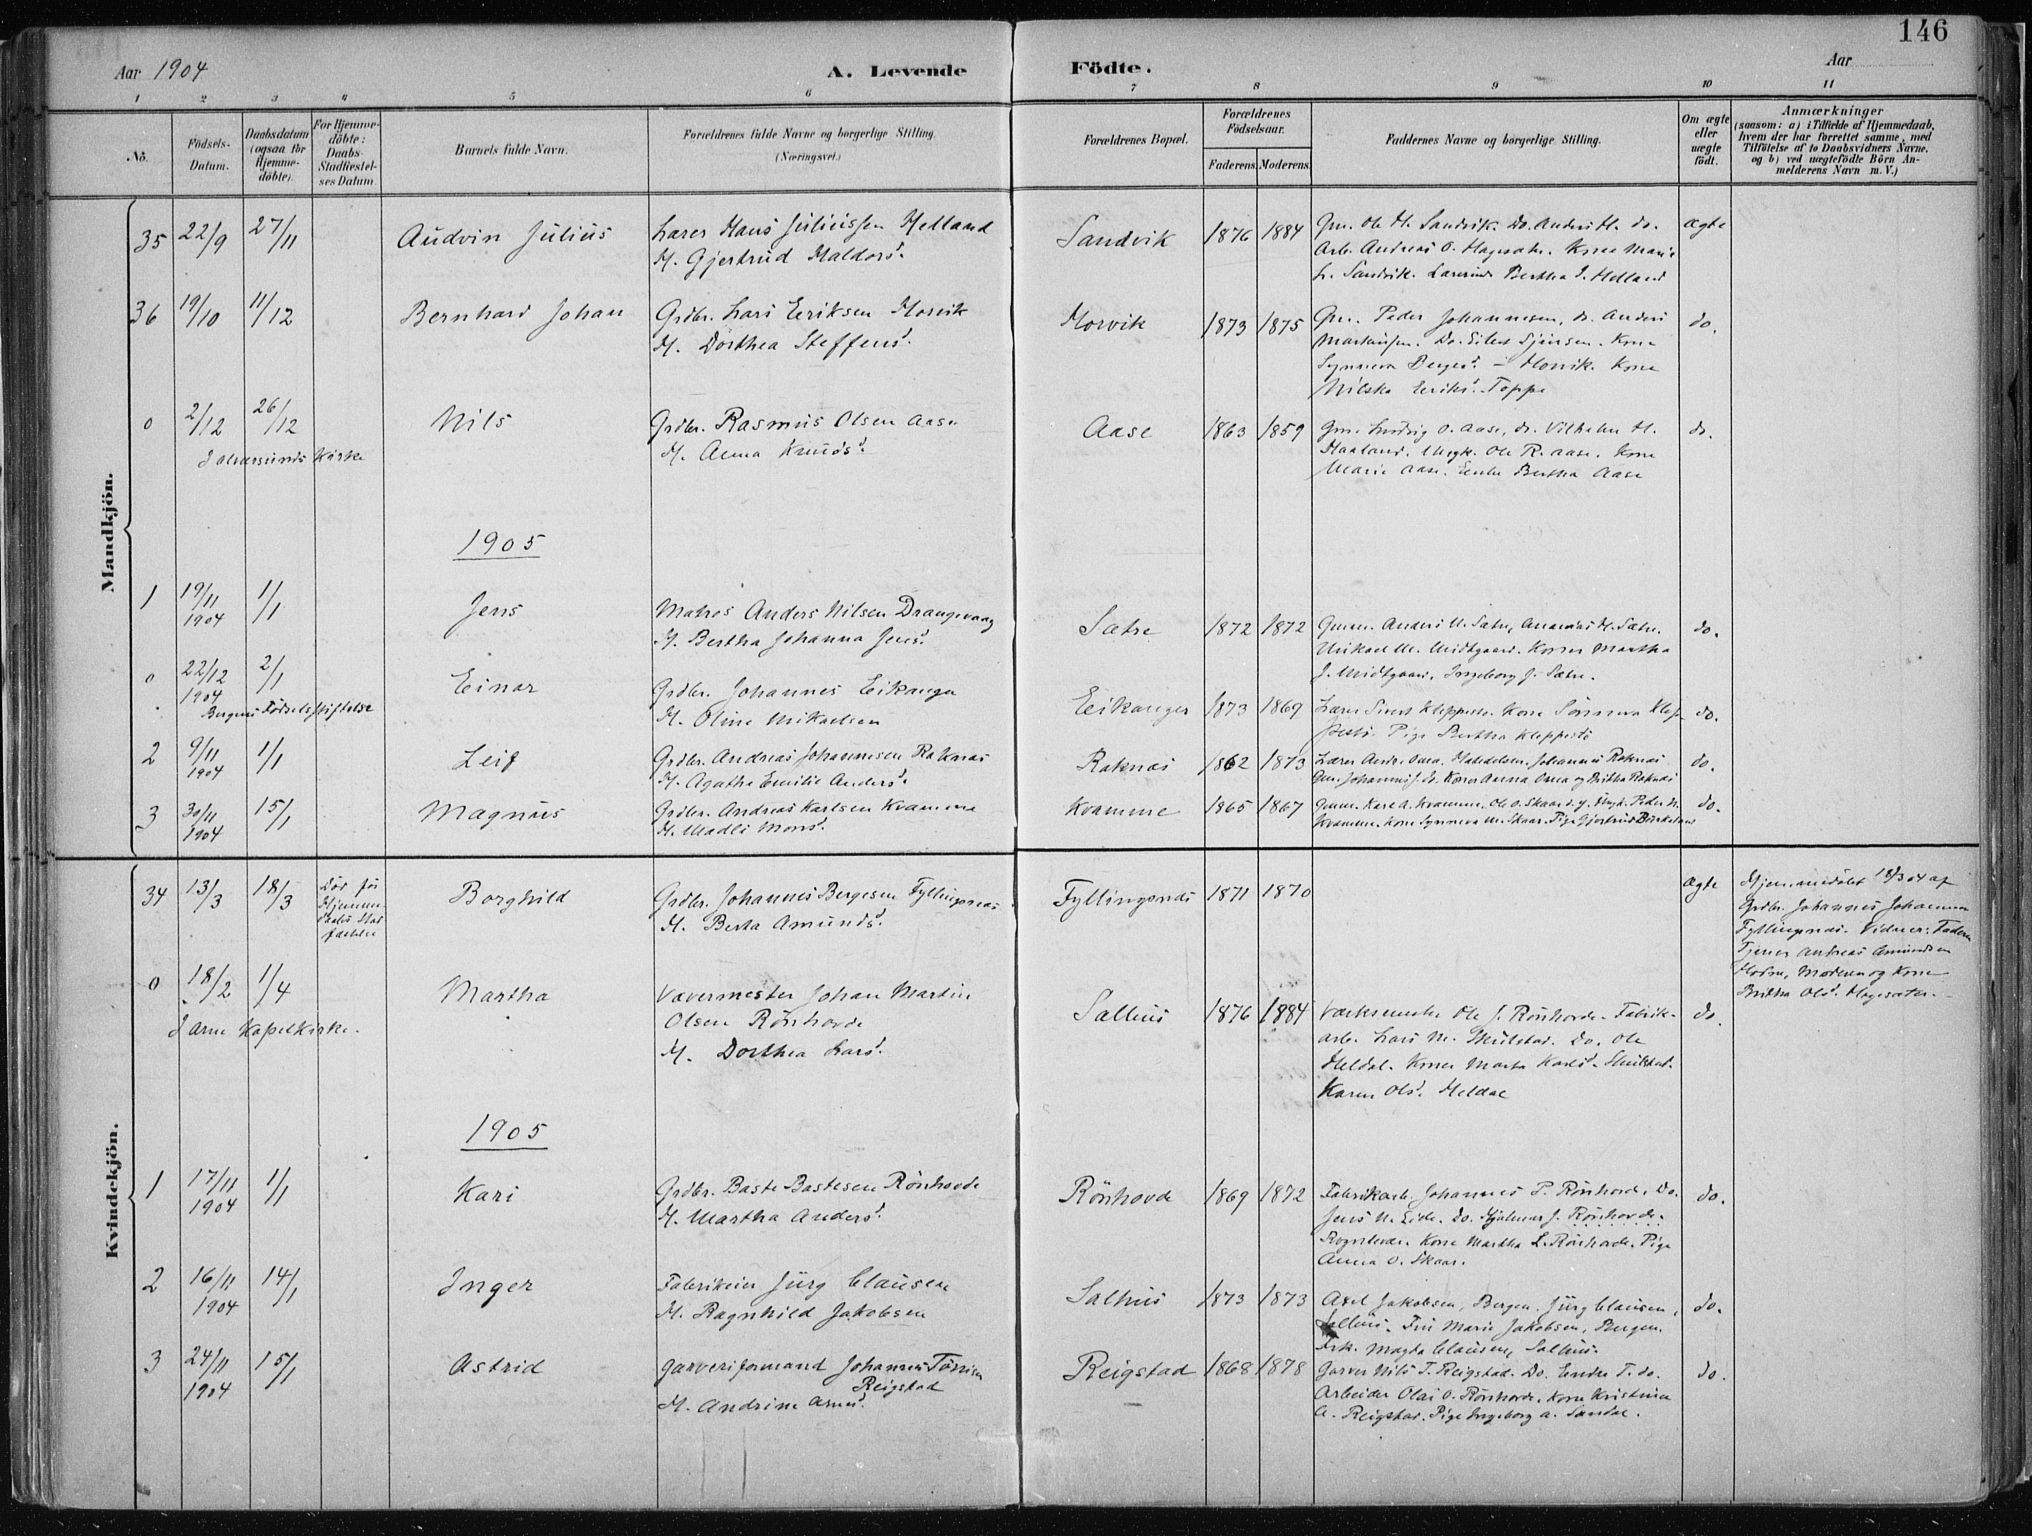 146
Aar 1904
A. Levende
Födte.
Aar
1 2 3 4 5 6 7 8 9 10 11
No.
Födsels-Datum.
Daabsdatum (ogsaa for Hjemme-döbte).
For Hjemme-döbte: Daabs-Stadfæstel-ses Datum.
Barnets fulde Navn.
Forældrenes fulde Navne og borgerlige Stilling. (Næringsvei.)
Forældrenes Bopæl.
Forældrenes Födselsaar.
Faderens. Moderens.
Faddernes Navne og borgerlige Stilling.
Om ægte eller uægte födt.
Anmærkninger (saasom: a) i Tilfælde af Hjemmedaab, hvem der har forrettet samme, med Tilföielse af to Daabsvidners Navne, og b) ved uægtefödte Börn An-melderens Navn m. V.)
Mandkjön.
35 22/9 27/11 Audvin Julius
Lærer Hans Juliussen Helland
H. Gjertrud Haldors d.
Sandvik 1876 1884
Gm. Ole H. Sandvik. Do. Anders H. do.
Arb. Andreas O. Hagesæter. Kone Marie
L. Sandvik. Lærerinde Bertha J. Helland
ægte
36 19/10 11/12 Bernhard Johan
Grdbr. Lars Eriksen Horvik
H. Dorthea Steffens d.
Horvik 1873 1875
Gm. Peder Johannesen, do. Anders
Do. Eilert
Synneva - Horvik. Kone
Nilska Eriks d. Toppe
do.
0 2/12 26/12 Nils
I Alversunds Kirke
Grdbr. Rasmus Olsen Aase
H. Anna Knuds d.
Aase 1863 1859
Gm. Ludvig O. Aase, do. Vilhelm H.
Haaland. Ungk. Ole R. Aase. Kone
Marie Aase. Enke Bertha Aase
do.
1905
1 19/11 1904 1/1 Jens
Matros Anders Nilsen Drangevaag
H. Bertha Johanna Jens d.
Sætre 1872 1872
Gmn. Anders N. Sætre, H. Sætre.
Mikael M. Midtgaard. Koner Martha
J. Midtgaard, Ingeborg J. Sætre.
do.
0 22/12 1904 2/1 Einar
Bergens Fødselsstiftelse
Grdbr. Johannes Eikanger
H. Oline Mikaelsen
Eikanger 1873 1869
Lærer Sivert Kleppestø. Kone Synneva Klep-
pestø. Pige Bertha Kleppestø
do.
2 9/11 1904 1/1 Leif
Grdbr. Andreas Johannesen Raknæs
H. Agathe Emilie Anders d.
Raknæs 1862 1873
Lærer Andr. Oma. Johannes Raknæs
Gm. Johannes J. do. Koner Anna Oma og Britha Raknæs
do.
3 30/11 1904 15/1 Magnus
Grdbr. Andreas Karlsen Kvamme
H. Madli Mons d.
Kvamme 1865 1867
Gmm. Karl A. Kvamme, Ole O. Skaar d. y. Ungk. Peder N.
Kvamme. Kone Synneva M. Skaar. Pige Gjertrud Birkeland
do.
Kvindekjön.
34 13/3 18/3
Død før
Hjemme-
daabs Stad
fæstelse
Borghild
Grdbr. Johannes Bergesen Fyllingsnæs
H. Berta Amunds d.
Fyllingsnæs 1871 1870
ægte
Hjemmedøbt 18/3 04 af
Grdbr. Johannes Johannesen
Fyllingsnæs. Vidner: Faderen
Tjener Andreas Amundsen
Moderen og Kone
Britha Ols d. Hagesæter.
0 18/2 1/4 Martha
I Arne Kapelkirke.
Vævermester Johan Martin
Olsen Rönhovde
H. Dorthea Lars d.
Salhus 1876 1884
Værksmester Ole J. Rönhovde. Fabrik-
arb. Lars M. Skulstad. Do. Ole
Heldal. Koner Marta Karls d. Skulstad.
Karen Ols d. Heldal
do.
1905
1 17/11 1904 1/1 Kari
Grdbr. Baste Bastesen Rönhovde
H. Martha Anders d.
Rönhovde 1869 1872
Fabrikarb. Johannes P. Rönhovde. Do.
Jens N. Eide. Do. Hjalmar J. Rönhovde.
Kone Martha L. Rönhovde. Pige
Anna O. Skaar.
do.
2 16/11 1904 14/1 Inger
Fabrikeier Jürg Clausen
H. Ragnhild Jakobsen
Salhus 1873 1873
Axel Jakobsen, Bergen. Jürg Clausen,
Salhus. Fru Marie Jakobsen, Bergen.
Frk. Magda Clausen, Salhus.
do.
3 24/11 1904 15/1 Astrid
Garveriformand Johannes
Reigstad
H. Andrine Arne d.
Reigstad 1868 1878
Garver Nils T. Reigstad. Do. Endre T. do.
Arbeider Olai O. Rönhovde. Kone Kristina
A. Reigstad. Pige Ingeborg A. Sandal.
do.